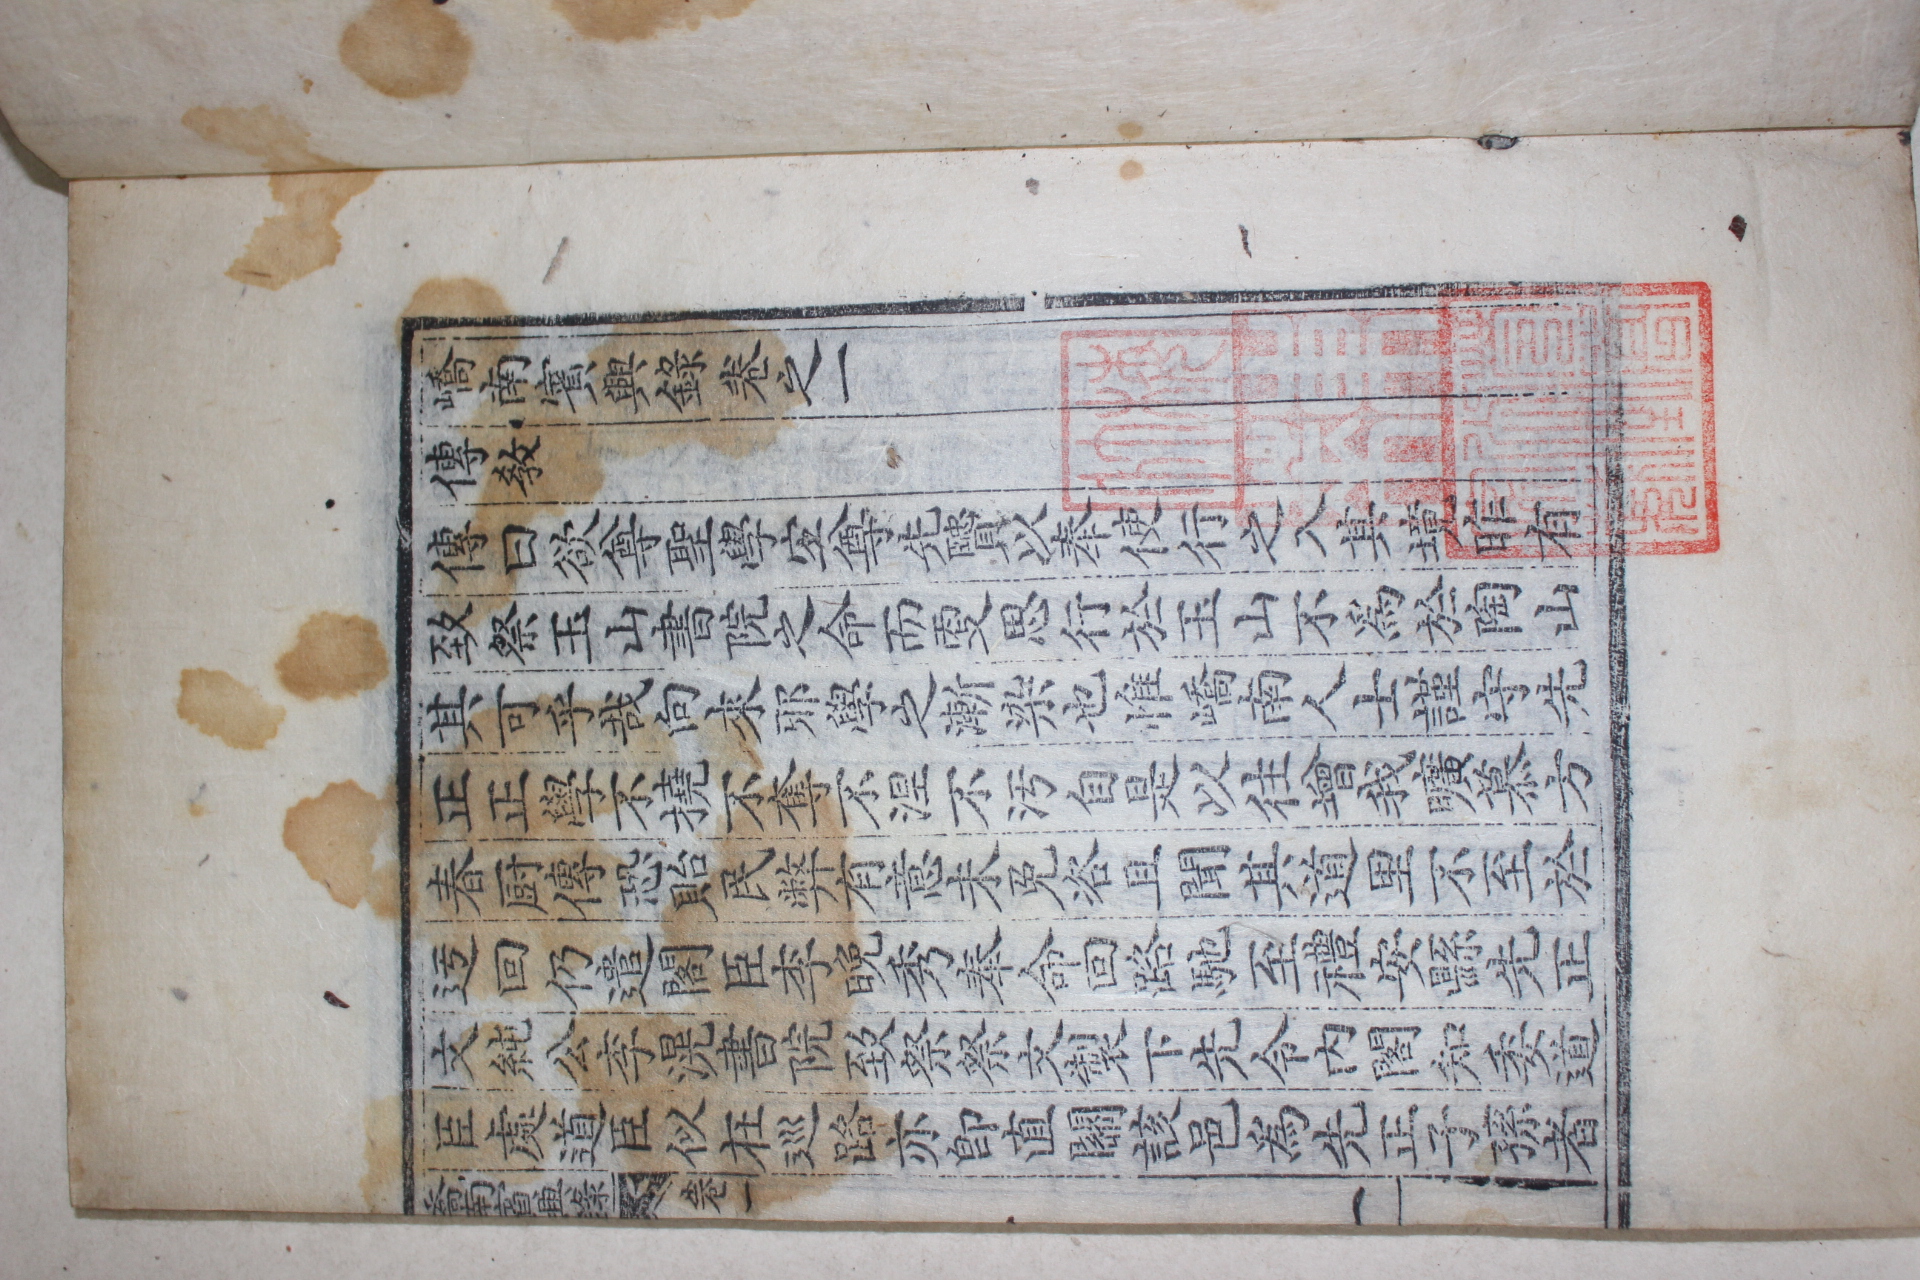 嶠南賓興錄卷之一
傳敎
傳曰欲尊聖學宜尊先賢以奉使行之入其境昨有
致祭玉山書院之命而更思行於玉山不爲於陶山
其可乎哉向來邪學之漸染也惟嶠南人士謹守先
正正學不撓不奪不涅不汚自是以往增我曠慕方
春厨傳恐貽民弊有意未免咨且聞其道里不至於
迃回仍遣閣臣李晩秀奉命回路馳至禮安縣先正
文純公李滉書院致祭祭文製下先令內閣知委道
臣處道臣似在巡路亦卽直關該邑爲先正子孫者
嶠南賓興錄 卷一 一